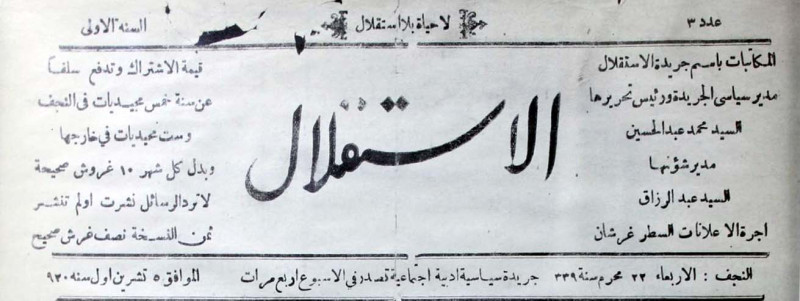 عدد ٣
لا حياة بلا استقلال
السنه الاولى
المكاتبات باسم جريدة الاستقلال
مدير سياسى الجريدة ورئيس تحريرها
السيد محمد عبد الحسين
مدير شؤنها
السيد عبد الرزاق
اجرة الاعلانات السطر غرشان
الاستقلال
قيمة الاشتراك وتدفع سلفا
عن سنة خمس مجيديات فى النجف
وست مجيديات فى خارجها
وبدل كل شهر ١٠ غروش صحيحة
لا ترد الرسائل نشرت اولم تنشر
ثمن النسخة نصف غرش صحيح
النجف : الاربعاء ٢٢ محرم سنة ٣٣٩ جريدة سياسية ادبية اجتماعية تصدر فى الاسبوع اربع مرات الموافق ٥ تشرين اول سنه ٩٢٠